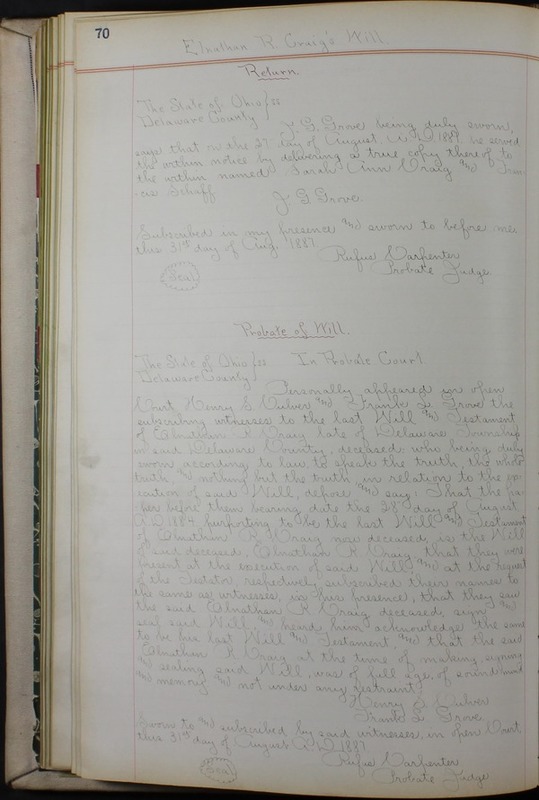 70
Elnathan R. Craig's Will.
Return.
The State of Ohio } ss
Delaware County
J. G. Grove being duly sworn,
says that on the 27 day of August A.D. 1887 he served
the within notice by delivering a true copy thereof to
the within named Sarah Ann Craig and Fran-
cis Schaff
J G Grove
Subscribed in my presence and sworn to before me
this 31st day of Aug. 1887
Rufus Carpenter
Probate Judge.
Seal
Probate of Will.
The State of Ohio } ss In Probate Court.
Delaware County
Personally appeared in open
Court, Henry S. Culver and Frank L. Grove the
subscribing witnesses to the last Will and Testament
of Elnathan R. Craig late of Delaware Township
in said Delaware County, deceased, who being duly
sworn according to law to speak the truth, the whole
truth, and nothing but the truth in relation to the exe-
cution of said Will, depose and say; That the pa-
per before them bearing date the 28 day of August
A.D. 1884 purporting to be the last Will and Testament
of Elnathan R. Craig now deceased, is the Will
of said deceased, Elnathan R. Craig, that they were
present at the execution of said Will, and at the request
of the Testator, respectively subscribed their names to
the same as witnesses, in his presence, that they saw
the said Elnathan R. Craig deceased, sign and
seal said Will and heard him acknowledge the same
to be his last Will and Testament, and that the said
Elnathan R. Craig at the time of making, signing
and sealing said Will, was of full age, of sound mind
and memory, and not under any restraint.
Henry S. Culver
Frank L. Grove
Sworn to and subscribed by said witnesses, in open Court
this 31st day of August A.D. 1887.
Rufus Carpenter
Probate Judge
Seal